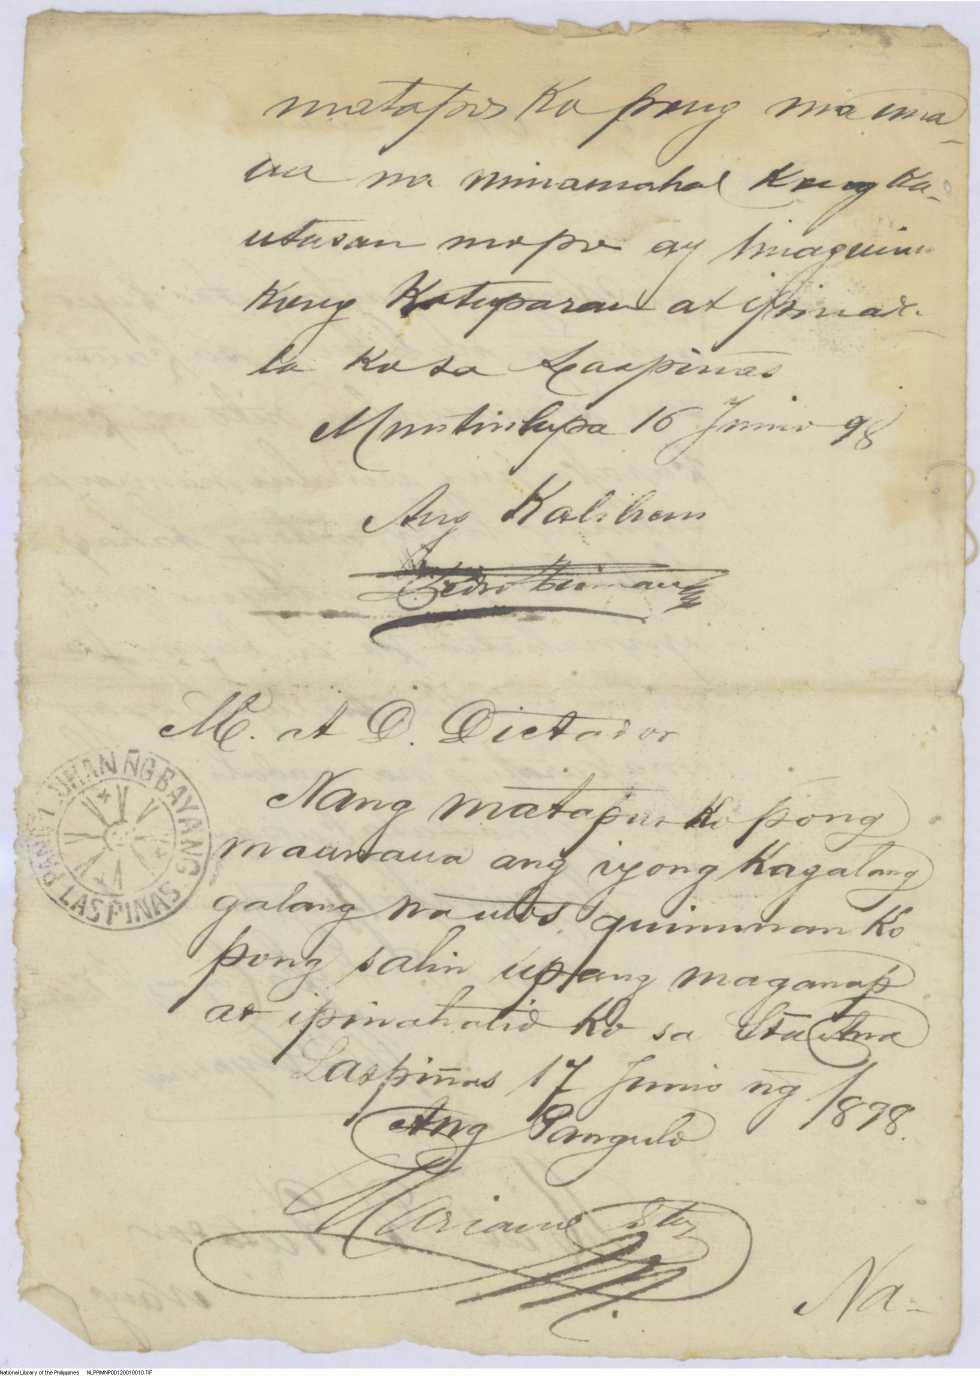 matapos ko pong ma una-
ua na minamahal kung Ka-
utusan mopo ay
kung Katuparan at ipinad-
la ko sa Laspiñas
Muntinlupa 16 Junio 98
Ang Kalihim
Pedro
M. at D. Dictador
Nang matapus Ko pong
maunaua ang iyong Kagalang
galang na utos, quinunan Ko
pong salin upang maganap
at ipinahatid ko sa
Laspiñas 17 Junio ng 1898.
Ang Pangulo
Mariano
Na-
PANGULUHAN ÑG BAYANG
LASPIÑAS
National Library of the Philippines NLPPIMNP00120010010.TIF